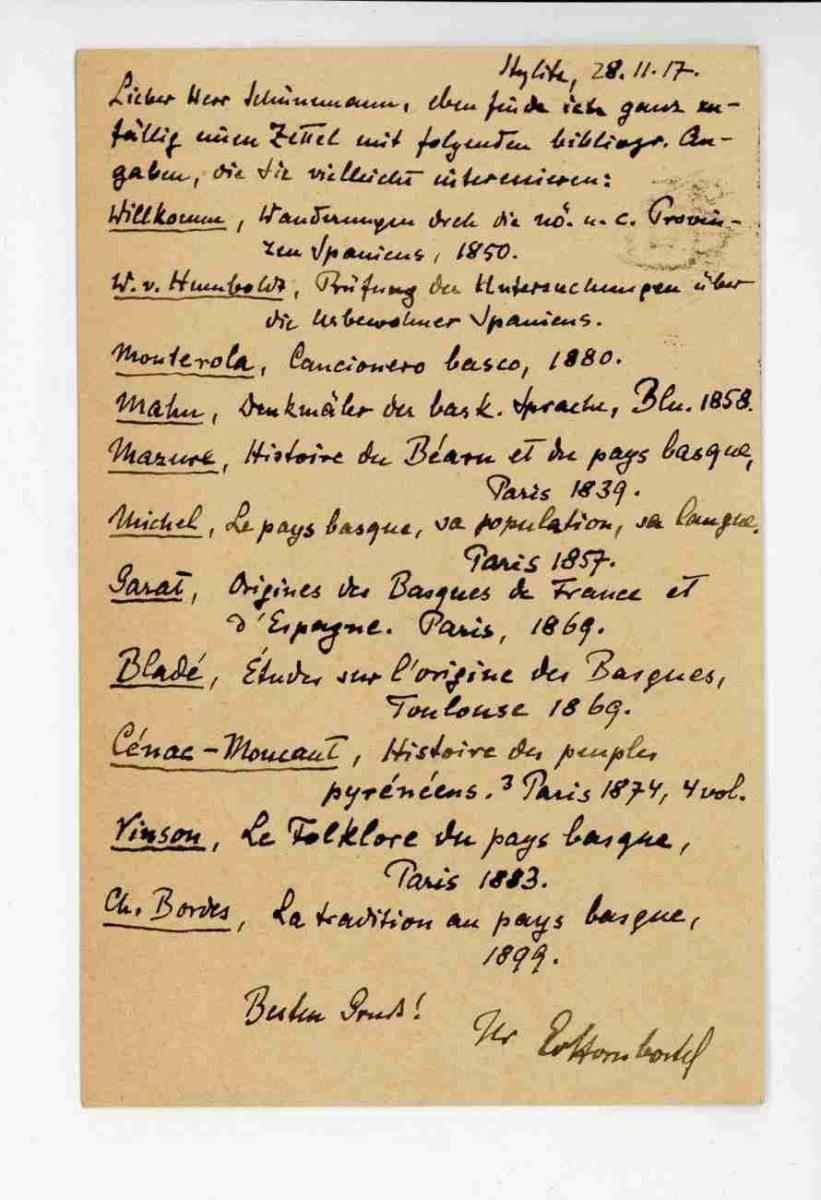 Stylitz, 28.11.17.
Lieber Herr Schünemann, eben finde ich ganz zu-
fällig einen Zettel mit folgenden bibliogr. An-
gaben, die Sie vielleicht interessieren:
Willkomm, Wanderungen drch die nö. u. c. Provin-
zen Spaniens, 1850.
W. v. Humboldt, Prüfung der Untersuchungen über
die Urbewohner Spaniens.
Monterola, Cancionero basco, 1880.
Mahn, Denkmäler der bask. Sprache, Bln. 1858.
Mazure, Histoire du Béarn et du pays basque,
Paris 1839.
Michel, Le pays basque, sa population, sa langue.
Paris 1857.
Garat, Origines des Basques de France et
d'Espagne. Paris, 1869.
Bladé, Études sur l'origine des Basques,
Toulouse 1869.
Cénac-Moncaut, Histoire des peuples
pyrénéens.³ Paris 1874, 4 vol.
Vinson, Le Folklore du pays basque,
Paris 1883.
Ch. Bordes, La tradition au pays basque,
1899.
Besten Gruß!
Ihr EvHornbostel